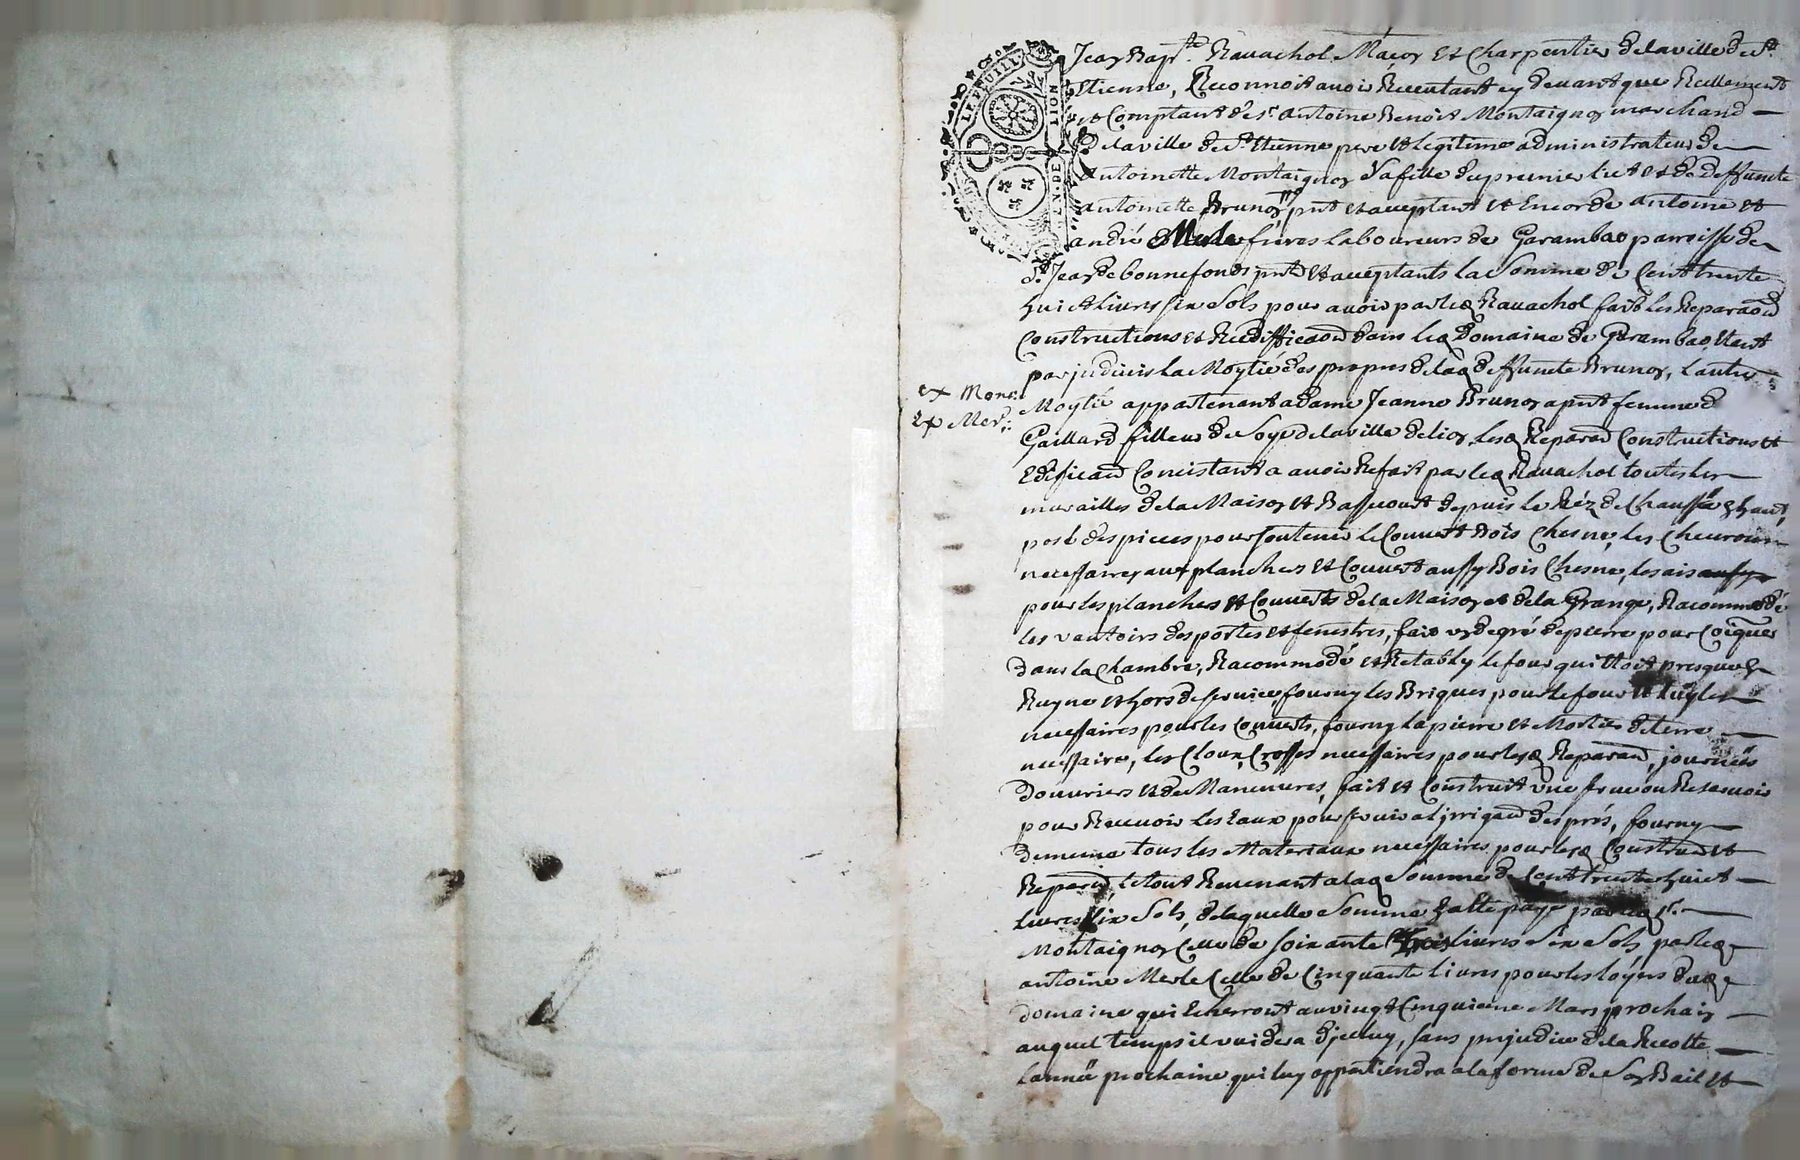 LE FEUILL
EN.DE LION
Jean Bapt.te Ravachol Maçon et Charpentier de la ville de St
Etienne, Reconnoit avoir Receu tant cy devant que Reellement
et Comptant de Sr. Antoine Benoit Montaignon marchand
de la ville de St. Etienne pere et legitime administrateur de
Antoinette Montaignon sa fille du premier lict et de deffuncte
antoinette Brunon, pnt et acceptant et Encor de antoine et
andré Merle freres laboureurs de Garambao parroisse de
St. Jean de bonnefonds pnts et acceptants la Somme de Cent trente
huict livres six Sols pour avoir par led Ravachol fait les Reparaons
Constructions et Reedifficaons dans led Domaine de Garambao, Etant
par judivis la Moytié des propres de lad deffuncte Brunon, Lautre
Moytié appartenant a dame Jeanne Brunon a pnt femme d
Gaillard filleur de Soye de la ville de lion, lesd Reparaons Constructions et
Edificaons Concistant a avoir Refait par led Ravachol toutes les
murailles de la Maison et Bassecourt depuis le Réz de Chaussée
posé des pieces pour soutenir le Couvert Bois Chesne, les Chevrons
necessaires aux planchers et Couvert aussy Bois Chesne, les ais aussy
pour les planchers et Couverts de la Maison et de la Grange, Racommodé
les vantoirs des portes et fenestres, fait un degré de pierre pour
dans la Chambre, Racommodé et Retably le four qui Etoit presque en
Ruyne et hors de service, fourny les Briques pour le four et tuyles
necessaires pour les Couverts, fourny la pierre et Mortier de terre
necessaire, les Cloux, Crosses necessaires pour lesd Reparaons, journées
douvriers et de Maneuvres, fait et Construit une serve ou Reservoir
pour Recevoir les Eaux pour servir a l'jrrigaon des prés, fourny
de meme tous les Materiaux necessaires pour lesd Construons et
Reparaons, le tout Revenant a lad Somme de Cent trente huict
livres six Sols, de laquelle Somme ha Eté payé par led Sr.
Montaignon Celle de soixante livres Six Sols par led
antoine Merle Celle de Cinquante livres pour les loyers dud
domaine qui Echerront au vingt Cinquieme Mars prochain
auquel temps il vuidera d'jceluy, sans prejudice de la Recolte
Lannée prochaine qui luy appartiendra a la forme de Son Bail et